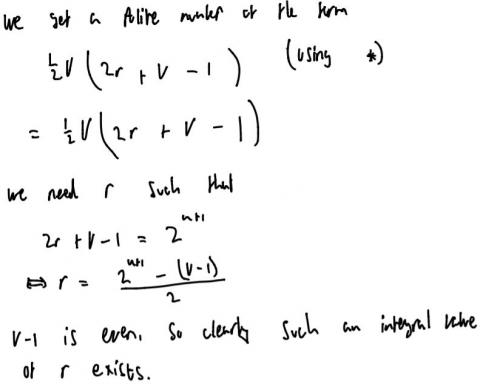 we get a Polite number of the form
½V(2r + V - 1) (using *)
= ½V(2r + V - 1)
we need r such that
2r + V - 1 = 2ⁿ⁺¹
⇔ r = (2ⁿ⁺¹ - (V-1))/2
V-1 is even, so clearly such an integral value
of r exists.